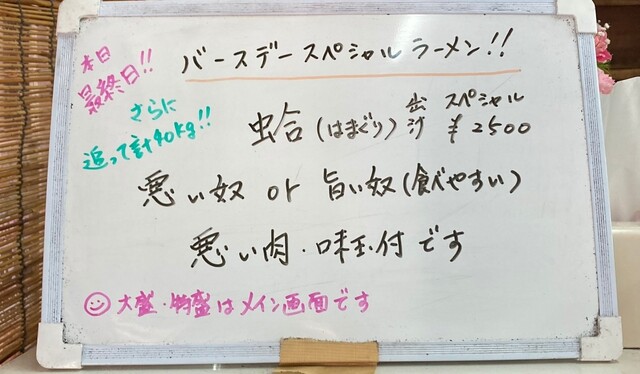 本日
最終日!!
バースデースペシャルラーメン!!
さらに
追って計40kg!!
蛤(はまぐり)出汁 スペシャル
¥2500
悪い奴 or 旨い奴(食べやすい)
悪い肉・味玉付です
大盛・特盛はメイン画面です